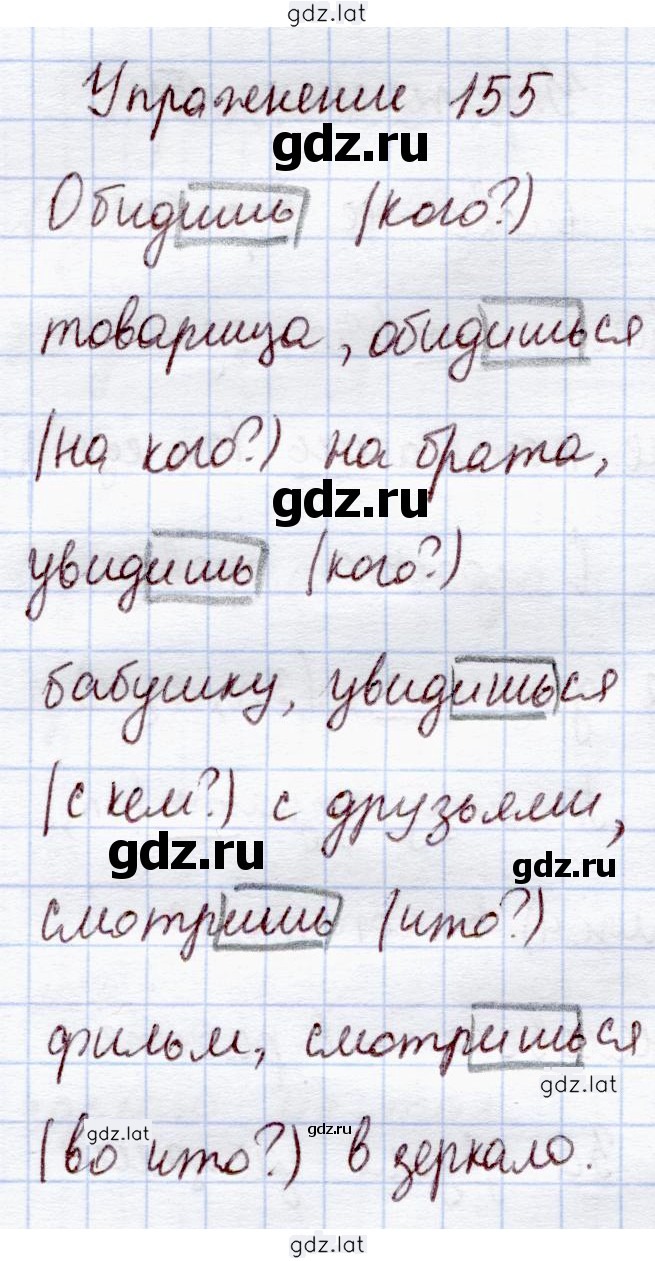 gdz.lat
Упражнение 155
gdz.ru
Обидишь (кого?)
товарища, обидишься
(на кого?) на брата,
gdz.ru
увидишь (кого?)
бабушку, увидишься
(с кем?) с друзьями,
gdz.ru
gdz.ru
смотришь (что?)
фильм, смотришься
gdz.lat
gdz.lat
gdz.ru
(во что?) в зеркало.
gdz.lat